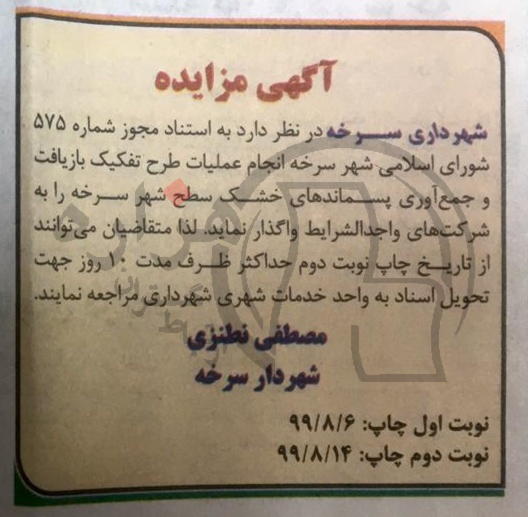 آگهی مزایده
شهرداری سرخه در نظر دارد به استناد مجوز شماره ۵۷۵
شورای اسلامی شهر سرخه انجام عملیات طرح تفکیک بازیافت
و جمع‌آوری پسماندهای خشک سطح شهر سرخه را به
شرکت‌های واجدالشرایط واگذار نماید. لذا متقاضیان می‌توانند
از تاریخ چاپ نوبت دوم حداکثر ظرف مدت ۱۰ روز جهت
تحویل اسناد به واحد خدمات شهری شهرداری مراجعه نمایند.
مصطفی نطنزی
شهردار سرخه
نوبت اول چاپ: ۹۹/۸/۶
نوبت دوم چاپ: ۹۹/۸/۱۴
هزاره